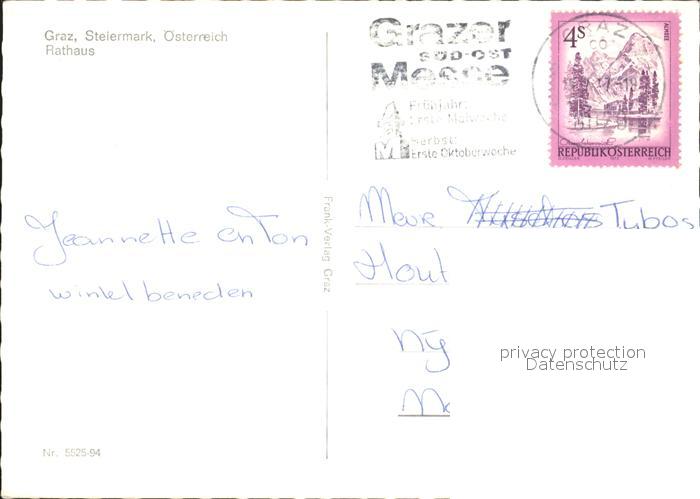 Graz, Steiermark, Österreich
Rathaus
Grazer
SÜD-OST
Messe
Frühjahr:
Erste Maiwoche
Herbst:
Erste Oktoberwoche
GRAZ
4S
ALMSEE
REPUBLIK ÖSTERREICH
Jeannette en Ton
winkel beneden
Frank-Verlag Graz
Mevr Tubos
Hout
Ny
privacy protection
Datenschutz
Nr. 5525-94